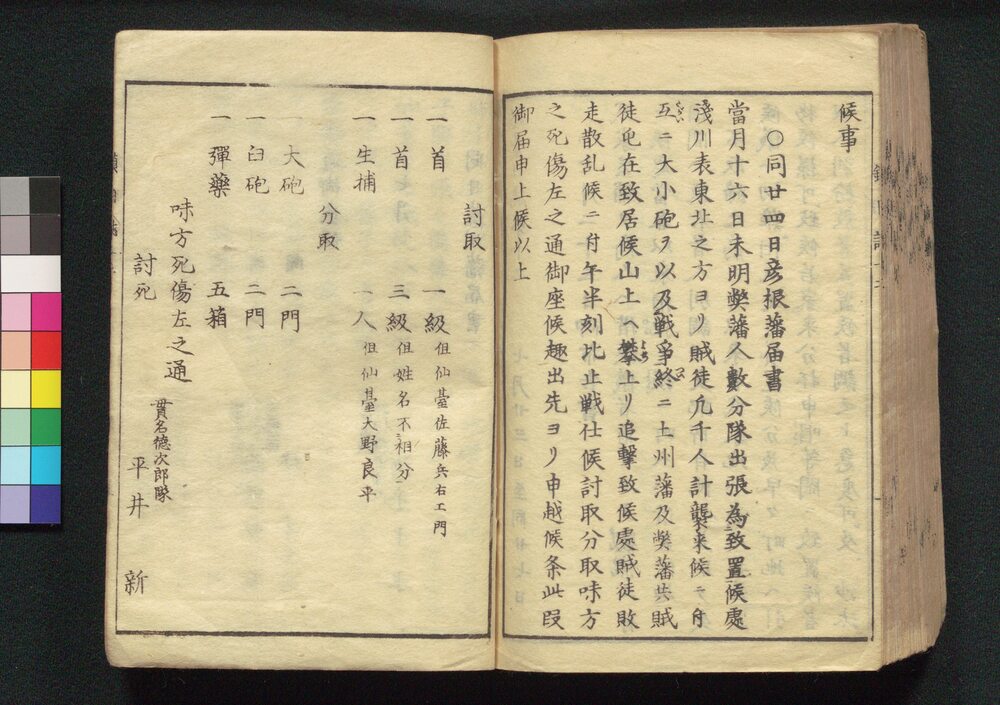 候事
○同廿四日彦根藩届書
當月十六日未明弊藩人數分隊出張為致置候處
淺川表東北之方ヨリ賊徒凢千人計襲来候ニ付
互ニ大小砲ヲ以及戦争終ニ土州藩及弊藩共賊
徒屯在致居候山上ヘ攀上リ追撃致候處賊徒敗
走散乱候ニ付午半刻比止戦仕候討取分取味方
之死傷左之通御座候趣出先ヨリ申越候条此段
御届申上候以上
討取
一首 一級 但仙臺佐藤兵右エ門
一首 三級 但姓名不相分
一生捕 一人 但仙臺大野良平
分取
大砲 二門
一臼砲 二門
一彈藥 五箱
味方死傷左之通
貫名徳次郎隊
討死 平井 新